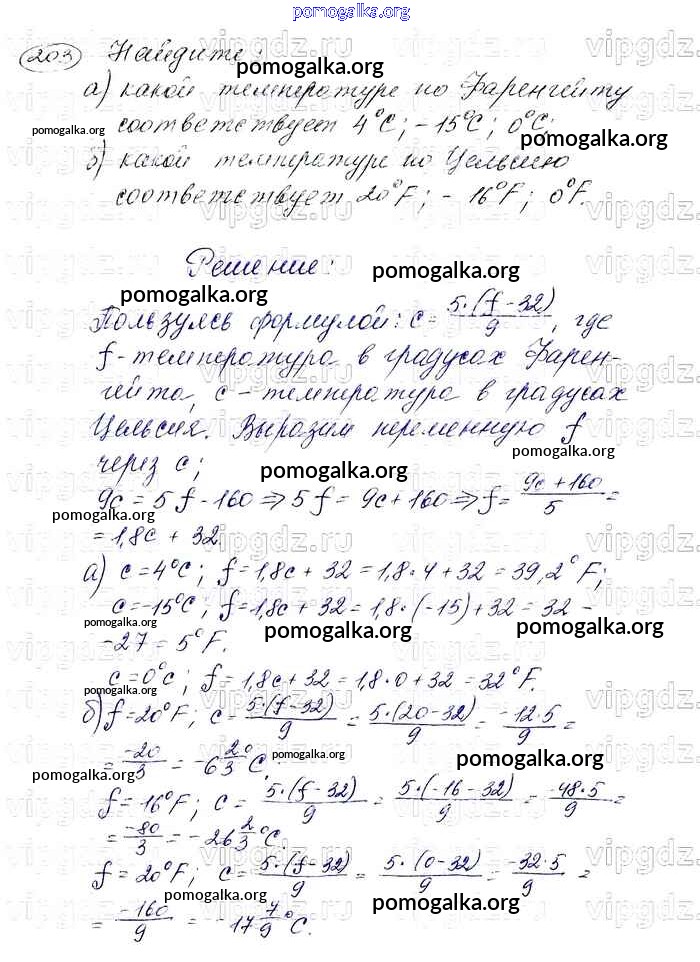 pomogalka.org
203 Найдите:
pomogalka.org
а) какой температуре по Фаренгейту
pomogalka.org
соответствует 4°C; -15°C; 0°C;
pomogalka.org
б) какой температуре по Цельсию
соответствует 20°F; -16°F; 0°F.
Решение:
pomogalka.org
pomogalka.org
Пользуясь формулой: c = 5·(f-32)/9, где
f - температура в градусах Фарен-
гейта, c - температура в градусах
Цельсия. Выразим переменную f
через c;
pomogalka.org
9c = 5f - 160 ⇒ 5f = 9c + 160 ⇒ f = (9c + 160)/5 =
pomogalka.org
= 1,8c + 32.
а) c = 4°C; f = 1,8c + 32 = 1,8·4 + 32 = 39,2°F;
pomogalka.org
c = -15°C; f = 1,8c + 32 = 1,8·(-15) + 32 = 32 -
pomogalka.org
pomogalka.org
-27 = 5°F.
c = 0°c; f = 1,8c + 32 = 1,8·0 + 32 = 32°F.
pomogalka.org
б) f = 20°F; c = 5·(f-32)/9 = 5·(20-32)/9 = -12·5/9 =
= -20/3 = -6 2/3 °C;
pomogalka.org
pomogalka.org
pomogalka.org
f = -16°F; c = 5·(f-32)/9 = 5·(-16-32)/9 = -48·5/9 =
= -80/3 = -26 2/3 °C.
pomogalka.org
f = 20°F; c = 5·(f-32)/9 = 5·(0-32)/9 = -32·5/9 =
pomogalka.org
pomogalka.org
= -160/9 = -17 7/9 °C.
vipgdz.ru